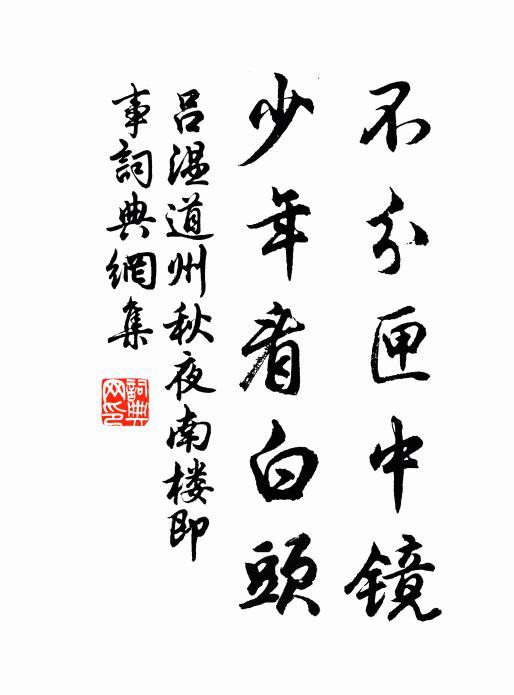 不分匣中镜
少年看白頭
吕温道州秋夜南楼即
事詞典網集
詞典网印